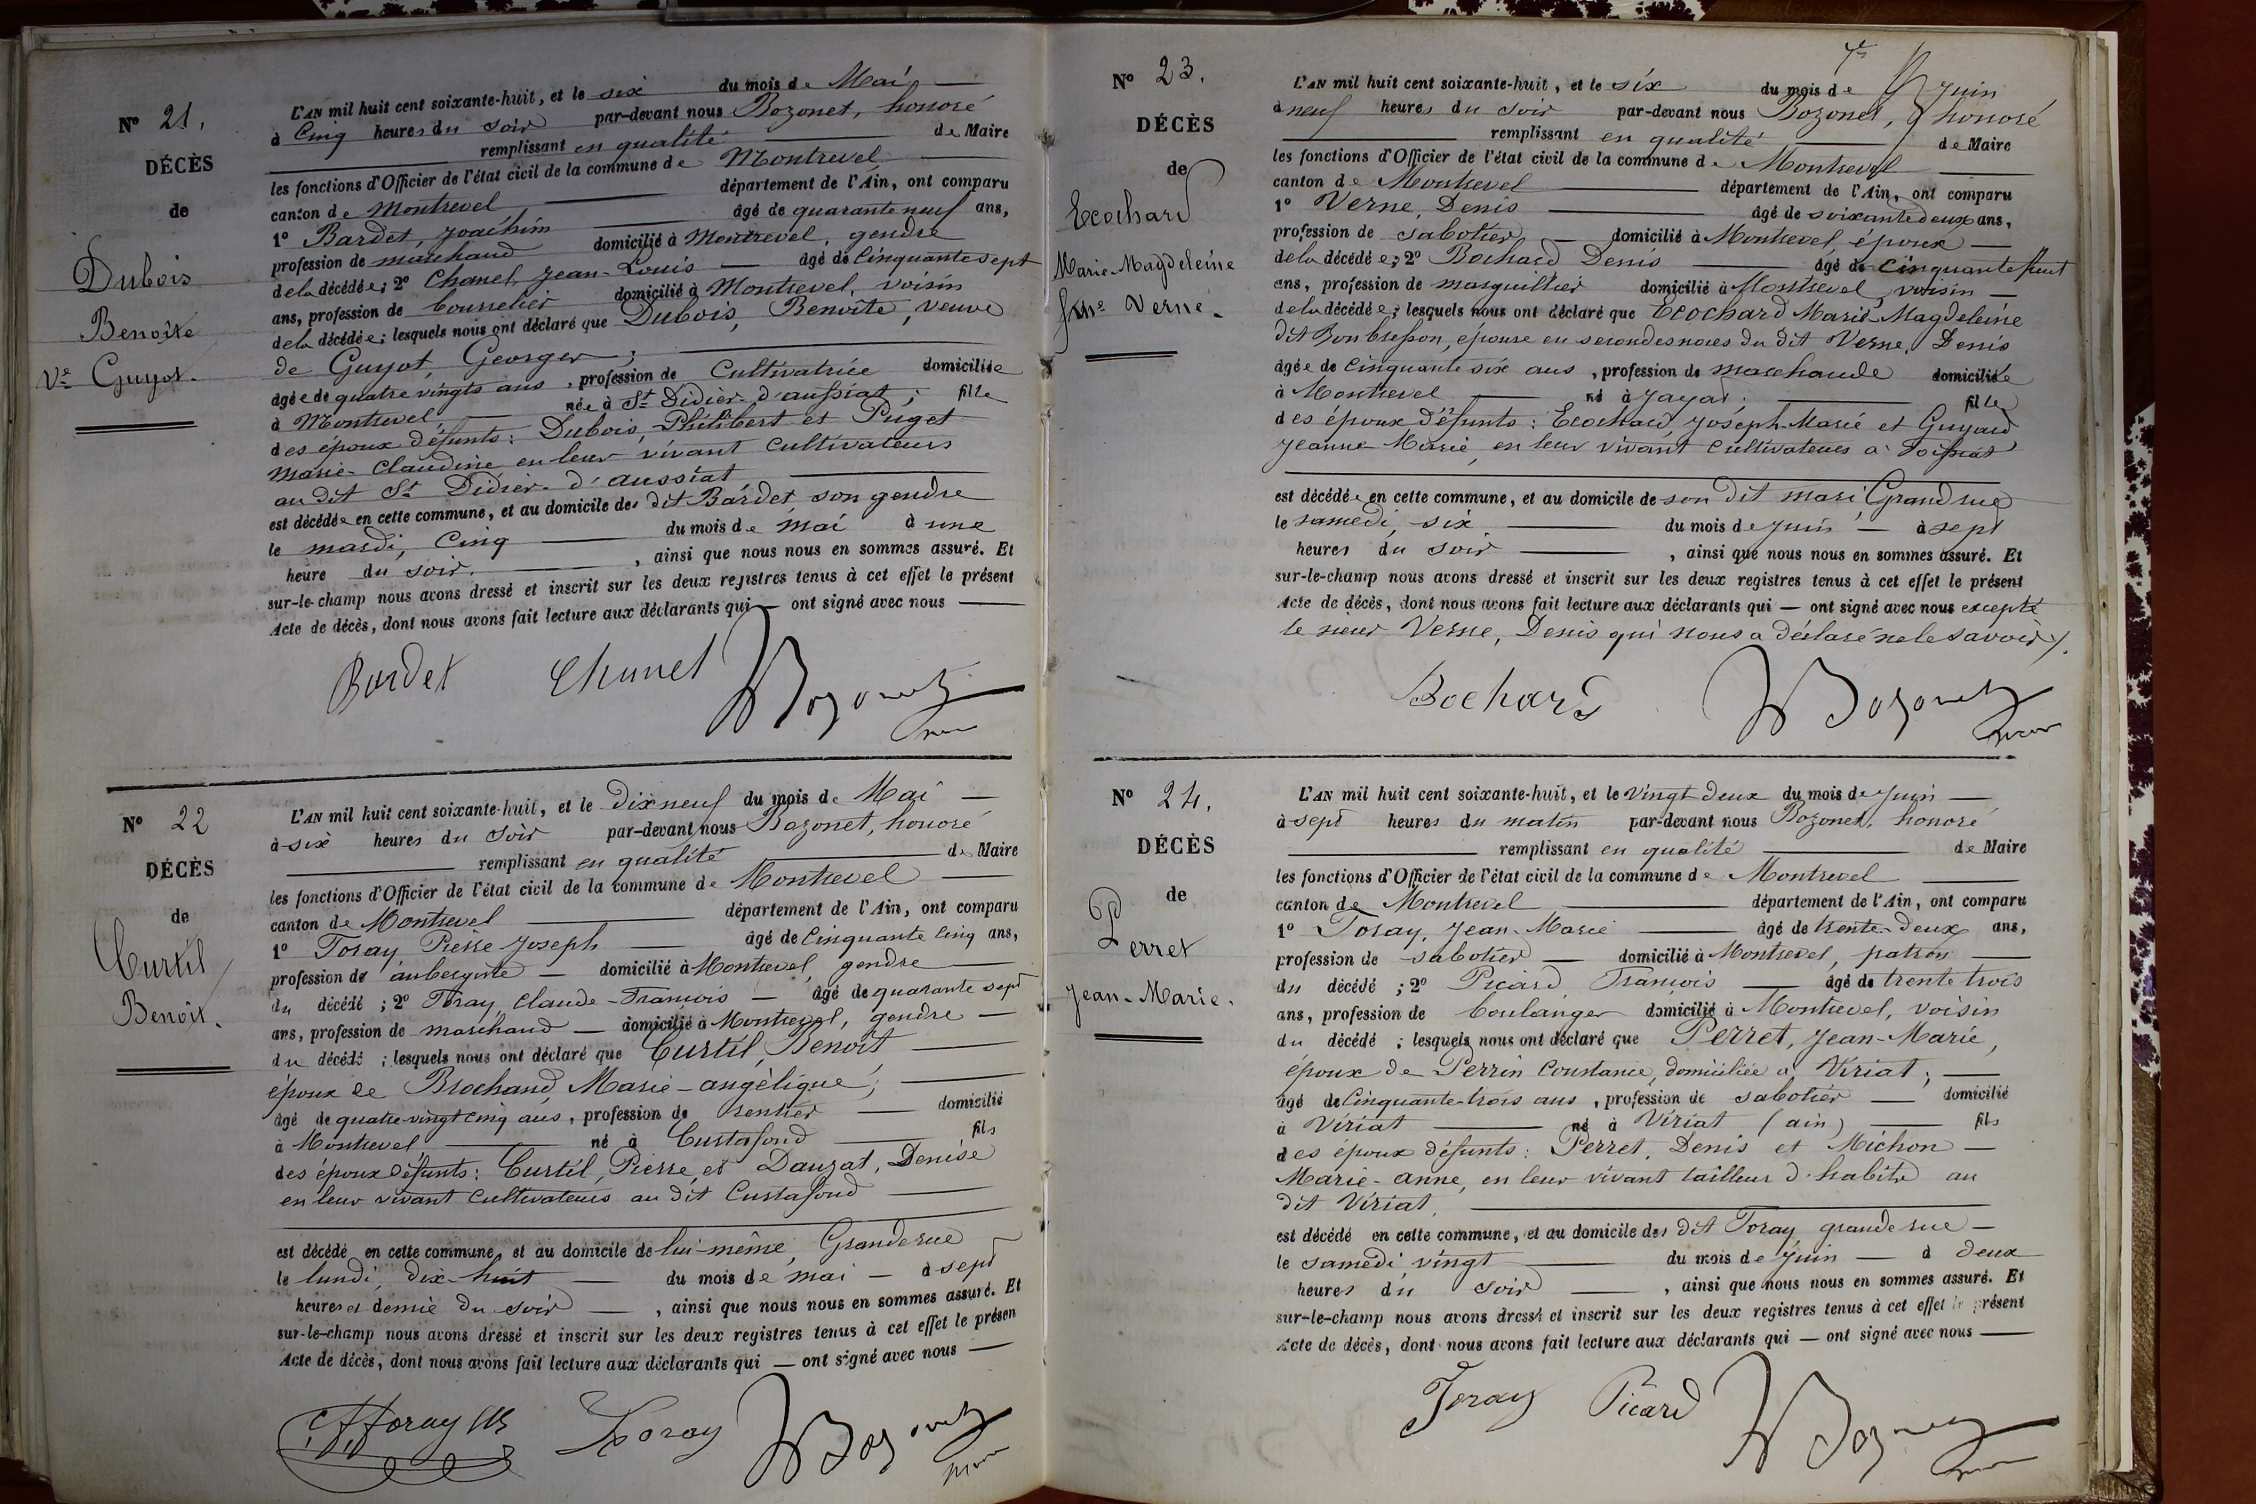 N° 21.
DÉCÈS
de
Dubois
Benoîte
Ve Guyot.
L'AN mil huit cent soixante-huit, et le six du mois de Mai
à Cinq heures du soir par-devant nous Bozonet, honoré
remplissant en qualité de Maire
les fonctions d'Officier de l'état civil de la commune de Montrevel
canton de Montrevel département de l'Ain, ont comparu
1° Bardet, Joachim âgé de quarante neuf ans,
profession de marchand domicilié à Montrevel, gendre
de la décédée; 2° Chanel, Jean-Louis âgé de Cinquante sept
ans, profession de bourrelier domicilié à Montrevel, voisin
de la décédée; lesquels nous ont déclaré que Dubois, Benoîte, veuve
de Guyot, Georges;
âgée de quatre vingts ans, profession de Cultivatrice domiciliée
à Montrevel, née à St Didier d'aussiat; fille
des époux défunts: Dubois, Philibert et Puget
Marie-Claudine en leur vivant cultivateurs
au dit St Didier-d'aussiat
est décédée en cette commune, et au domicile des dit Bardet, son gendre
le mardi, Cinq du mois de mai à une
heure du soir. , ainsi que nous nous en sommes assuré. Et
sur-le-champ nous avons dressé et inscrit sur les deux registres tenus à cet effet le présent
Acte de décès, dont nous avons fait lecture aux déclarants qui — ont signé avec nous
Bardet Chanel Bozonet
N° 22
DÉCÈS
de
Curtil
Benoit.
L'AN mil huit cent soixante-huit, et le Dix neuf du mois de Mai
à six heures du soir par-devant nous Bozonet, honoré
remplissant en qualité de Maire
les fonctions d'Officier de l'état civil de la commune de Montrevel
canton de Montrevel département de l'Ain, ont comparu
1° Foray Pierre Joseph âgé de Cinquante Cinq ans,
profession de aubergiste domicilié à Montrevel, gendre
du décédé; 2° Foray, Claude-François âgé de quarante sept
ans, profession de marchand domicilié à Montrevel, gendre
du décédé; lesquels nous ont déclaré que Curtil, Benoit
époux de Brochand, Marie-angélique;
âgé de quatre-vingt cinq ans, profession de rentier domicilié
à Montrevel né à Curtafond fils
des époux défunts: Curtil, Pierre, et Dauzat, Denise
en leur vivant cultivateurs au dit Curtafond
est décédé en cette commune, et au domicile de lui-même, Grande rue
le lundi, dix-huit du mois de mai — à sept
heures et demie du soir , ainsi que nous nous en sommes assuré. Et
sur-le-champ nous avons dressé et inscrit sur les deux registres tenus à cet effet le présen
Acte de décès, dont nous avons fait lecture aux déclarants qui — ont signé avec nous
Foray Foray Bozonet
N° 23.
DÉCÈS
de
Ecochard
Marie-Magdeleine
fme Verne.
L'AN mil huit cent soixante-huit, et le six du mois de Juin
à neuf heures du soir par-devant nous Bozonet, honoré
remplissant en qualité de Maire
les fonctions d'Officier de l'état civil de la commune de Montrevel
canton de Montrevel département de l'Ain, ont comparu
1° Verne, Denis âgé de soixante deux ans,
profession de sabotier domicilié à Montrevel, époux
de la décédée; 2° Bochard Denis âgé de cinquante huit
ans, profession de marguillier domicilié à Montrevel, voisin
de la décédée; lesquels nous ont déclaré que Ecochard Marie-Magdeleine
dit Bonbresson, épouse en secondes noces du dit Verne, Denis
âgée de Cinquante six ans, profession de marchande domiciliée
à Montrevel né à Jayat; fille
des époux défunts: Ecochard, Joseph-Marie et Guyard
Jeanne Marie, en leur vivant cultivateurs à Foissiat
est décédée en cette commune, et au domicile de son dit mari, Grand rue
le samedi, six du mois de juin — à sept
heures du soir , ainsi que nous nous en sommes assuré. Et
sur-le-champ nous avons dressé et inscrit sur les deux registres tenus à cet effet le présent
Acte de décès, dont nous avons fait lecture aux déclarants qui — ont signé avec nous excepté
le sieur Verne, Denis qui nous a déclaré ne le savoir
Bochard Bozonet
N° 24.
DÉCÈS
de
Perret
Jean-Marie.
L'AN mil huit cent soixante-huit, et le vingt deux du mois de Juin
à sept heures du matin par-devant nous Bozonet, honoré
remplissant en qualité de Maire
les fonctions d'Officier de l'état civil de la commune de Montrevel
canton de Montrevel département de l'Ain, ont comparu
1° Foray, Jean-Marie âgé de trente-deux ans,
profession de sabotier domicilié à Montrevel, patron
du décédé; 2° Picard François âgé de trente trois
ans, profession de boulanger domicilié à Montrevel, voisin
du décédé; lesquels nous ont déclaré que Perret, Jean-Marie,
époux de Perrin Constance, domiciliée à Viriat;
âgé de Cinquante-trois ans, profession de sabotier domicilié
à Viriat né à Viriat (ain) fils
des époux défunts: Perret, Denis et Michon
Marie-anne, en leur vivant tailleur d'habits au
dit Viriat.
est décédé en cette commune, et au domicile des dit Foray, grande rue
le samedi vingt du mois de Juin — à deux
heures du soir , ainsi que nous nous en sommes assuré. Et
sur-le-champ nous avons dressé et inscrit sur les deux registres tenus à cet effet le présent
Acte de décès, dont nous avons fait lecture aux déclarants qui — ont signé avec nous
Foray Picard Bozonet